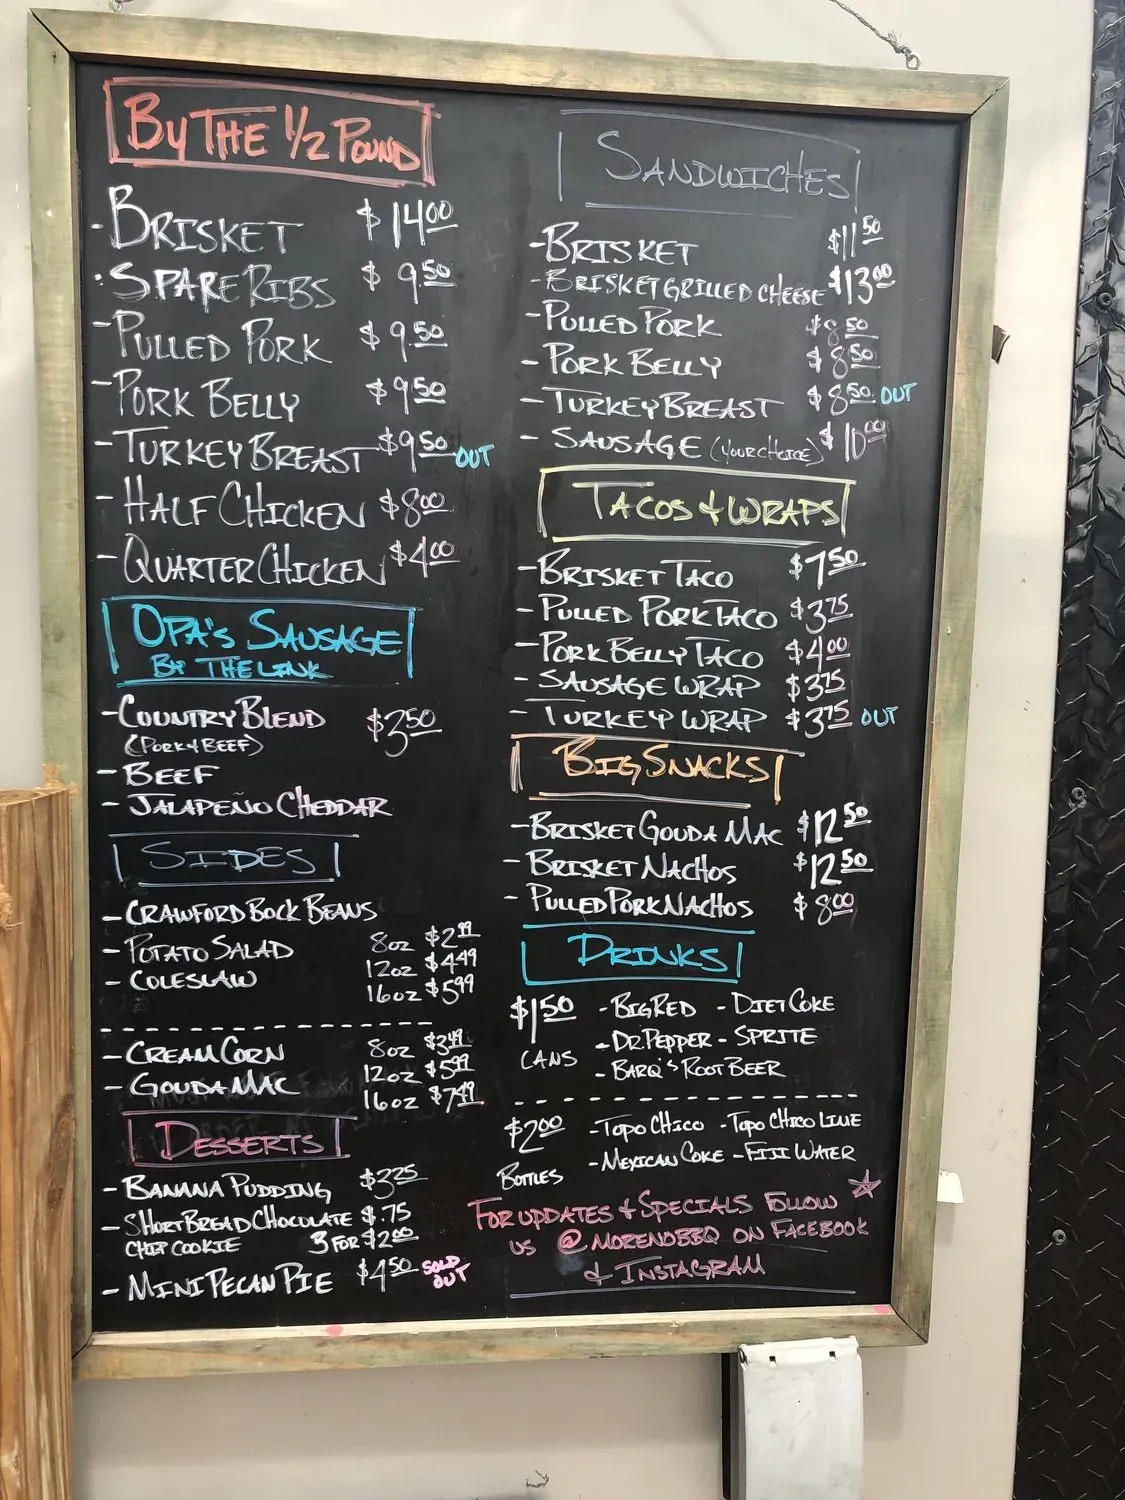 BY THE 1/2 POUND
- BRISKET $14.00
- SPARE RIBS $9.50
- PULLED PORK $9.50
- PORK BELLY $9.50
- TURKEY BREAST $9.50 OUT
- HALF CHICKEN $8.00
- QUARTER CHICKEN $4.00
OPA'S SAUSAGE
BY THE LINK
- COUNTRY BLEND $3.50
(PORK & BEEF)
- BEEF
- JALAPEÑO CHEDDAR
SIDES
- CRAWFORD BOCK BEANS
- POTATO SALAD 8oz $2.99
- COLESLAW 12oz $4.49
16oz $5.99
- CREAM CORN 8oz $3.49
- GOUDA MAC 12oz $5.99
16oz $7.49
DESSERTS
- BANANA PUDDING $3.25
- SHORTBREAD CHOCOLATE $.75
CHIP COOKIE 3 FOR $2.00
- MINI PECAN PIE $4.50 SOLD OUT
SANDWICHES
- BRISKET $11.50
- BRISKET GRILLED CHEESE $13.00
- PULLED PORK $8.50
- PORK BELLY $8.50
- TURKEY BREAST $8.50 OUT
- SAUSAGE (YOUR CHOICE) $10.00
TACOS & WRAPS
- BRISKET TACO $7.50
- PULLED PORK TACO $3.75
- PORK BELLY TACO $4.00
- SAUSAGE WRAP $3.75
- TURKEY WRAP $3.75 OUT
BIG SNACKS
- BRISKET GOUDA MAC $12.50
- BRISKET NACHOS $12.50
- PULLED PORK NACHOS $8.00
DRINKS
$1.50 - BIG RED - DIET COKE
CANS - DR. PEPPER - SPRITE
- BARQ'S ROOT BEER
$2.00 - TOPO CHICO - TOPO CHICO LIME
BOTTLES - MEXICAN COKE - FIJI WATER
FOR UPDATES & SPECIALS FOLLOW
US @MORENOBBQ ON FACEBOOK
& INSTAGRAM